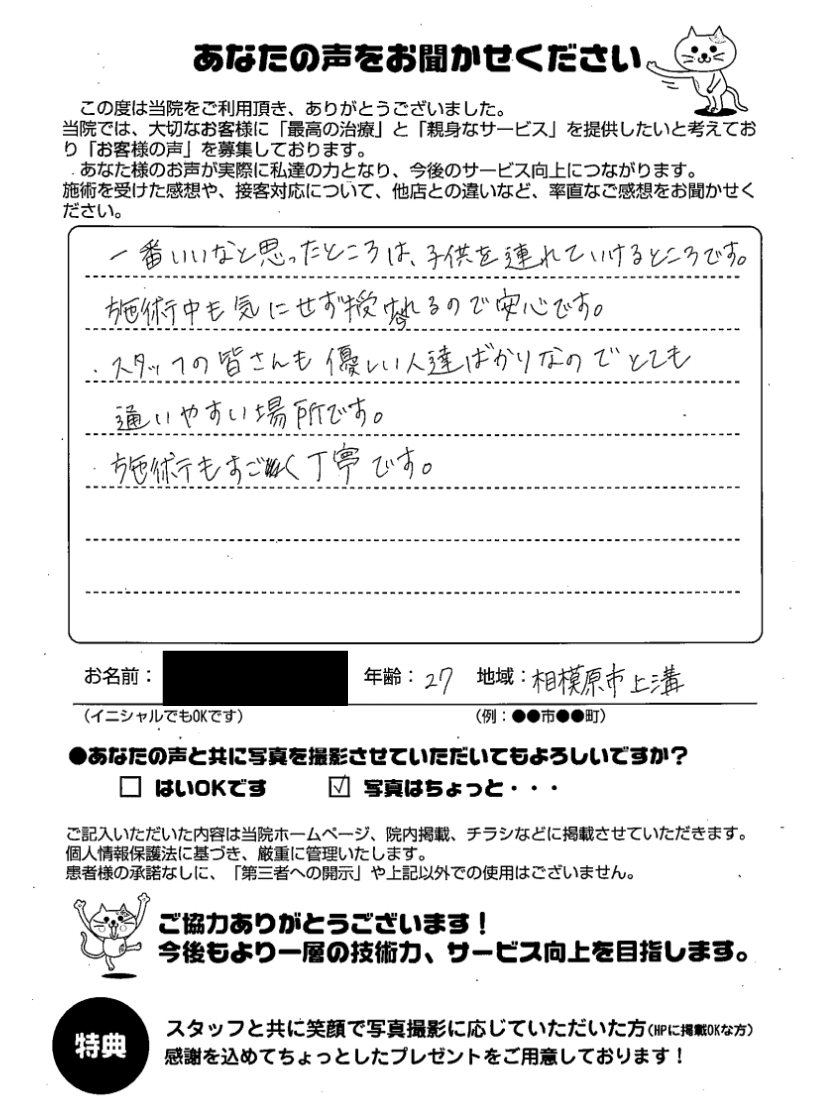 あなたの声をお聞かせください
この度は当院をご利用頂き、ありがとうございました。
当院では、大切なお客様に「最高の治療」と「親身なサービス」を提供したいと考えてお
り「お客様の声」を募集しております。
あなた様のお声が実際に私達の力となり、今後のサービス向上につながります。
施術を受けた感想や、接客対応について、他店との違いなど、率直なご感想をお聞かせく
ださい。
一番いいなと思ったところは、子供を連れていけるところです。
施術中も気にせず授けれるので安心です。
・スタッフの皆さんも優しい人達ばかりなのでとても
通いやすい場所です。
・施術もすごく丁寧です。
お名前： 年齢：27 地域：相模原市上溝
（イニシャルでもOKです） （例：●●市●●町）
●あなたの声と共に写真を撮影させていただいてもよろしいですか？
□ はいOKです ☑ 写真はちょっと・・・
ご記入いただいた内容は当院ホームページ、院内掲載、チラシなどに掲載させていただきます。
個人情報保護法に基づき、厳重に管理いたします。
患者様の承諾なしに、「第三者への開示」や上記以外での使用はございません。
ご協力ありがとうございます！
今後もより一層の技術力、サービス向上を目指します。
特典
スタッフと共に笑顔で写真撮影に応じていただいた方（HPに掲載OKな方）
感謝を込めてちょっとしたプレゼントをご用意しております！